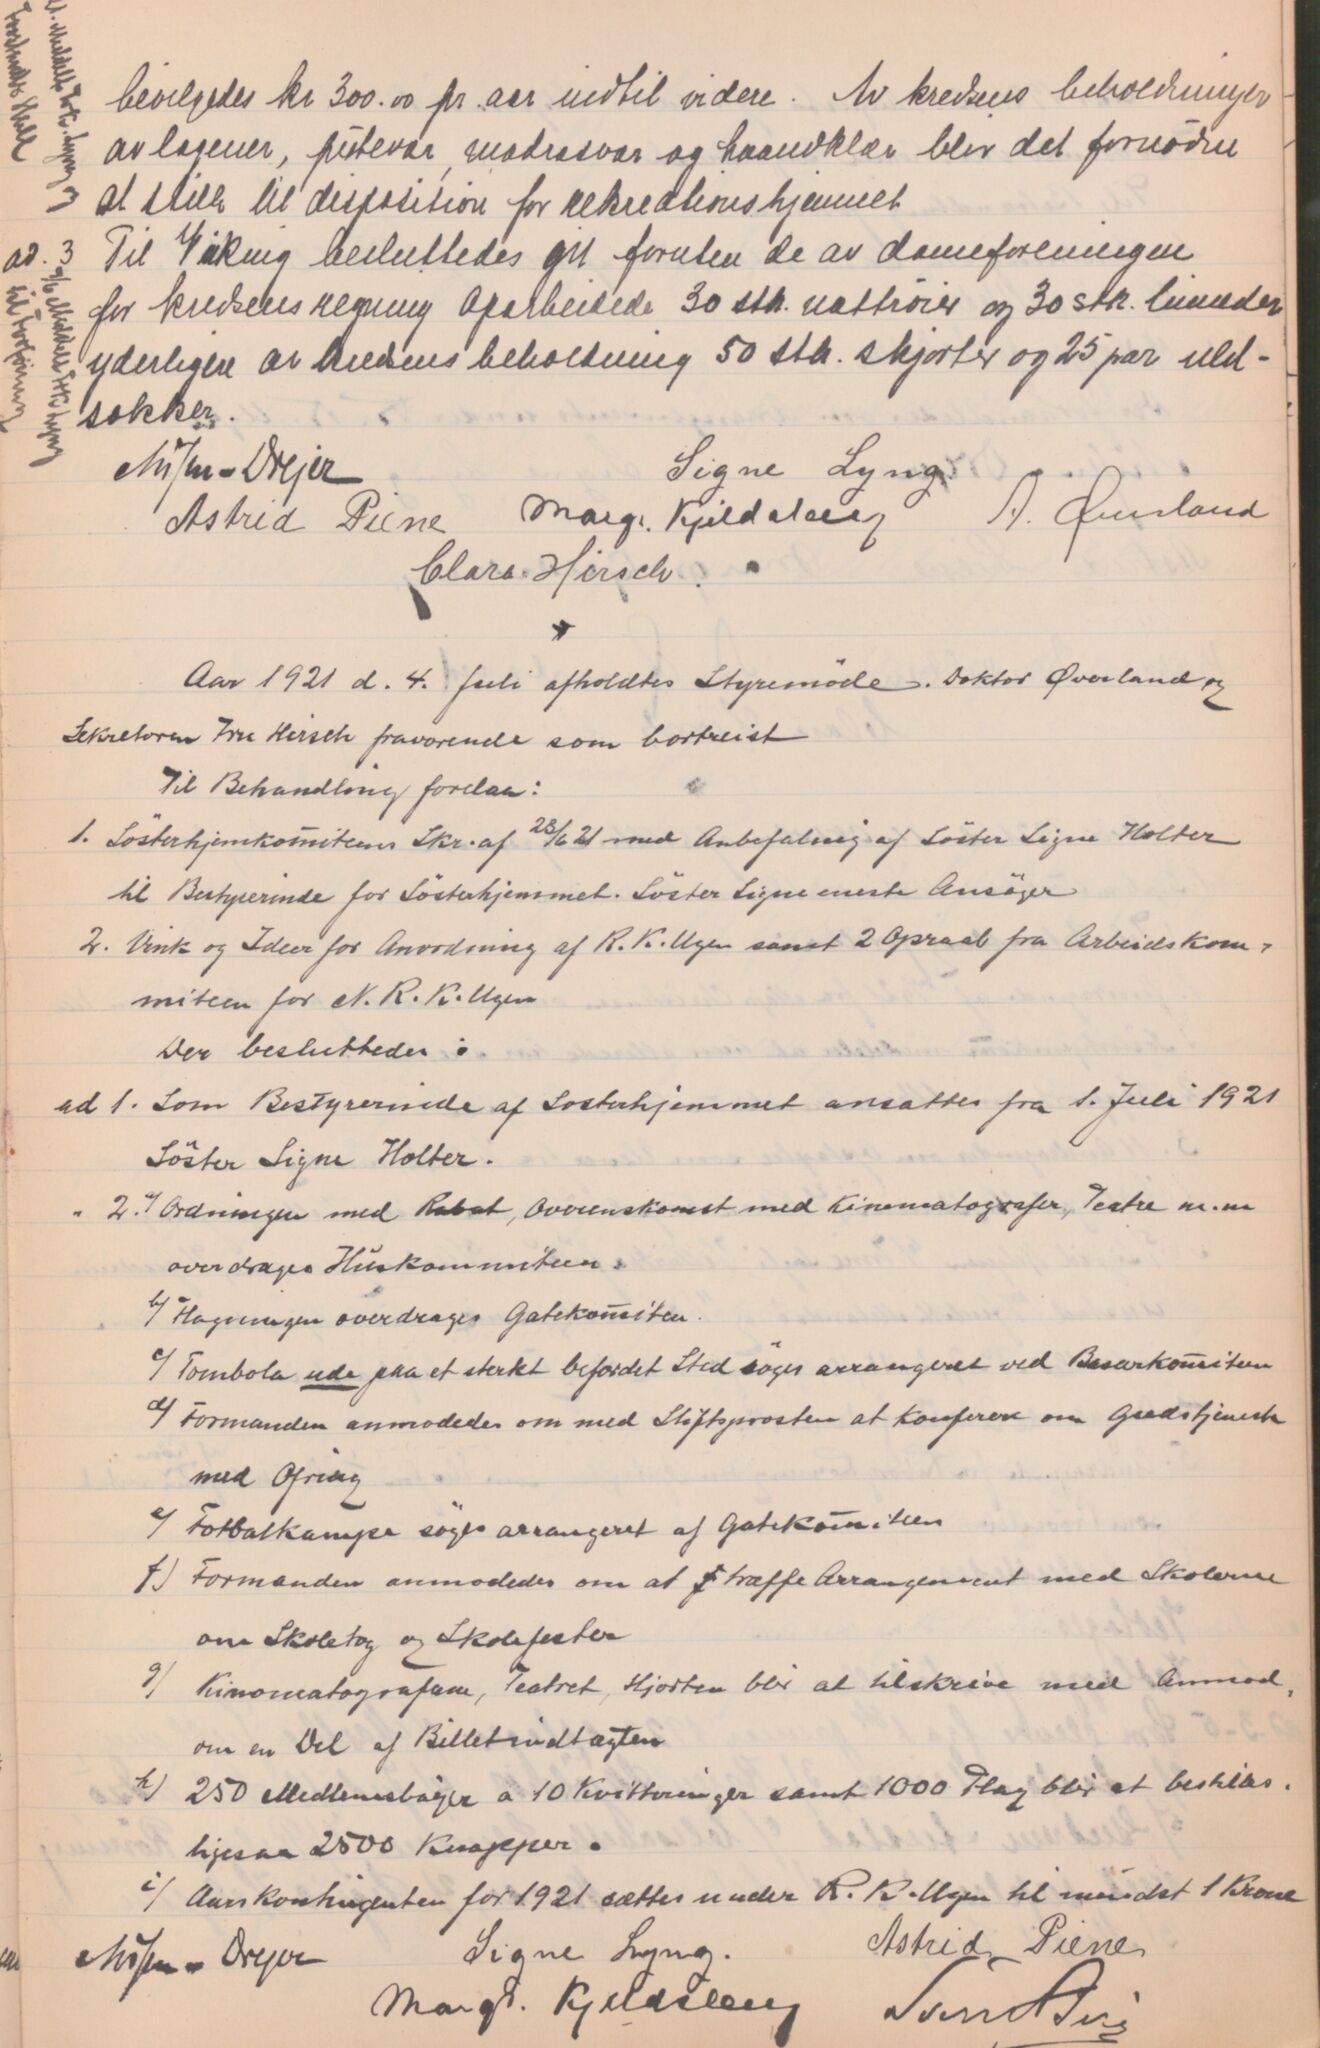 bevilgedes kr 300.00 pr. aar indtil videre. Av kredsens beholdninger
av lagener, putevar, madrasvar og haandklær blev det fornødne
at stille til disposition for rekreationshjemmet
ad. 3 Til Viking besluttedes git foruten de av dameforeningen
for kredsens regning oparbeidede 30 stk. nattrøier og 30 stk.
yderligere av kredsens beholdning 50 stk. skjorter og 25 par uld-
sokker.
Drejer Signe Lyng.
Astrid Piene Margr. Kjeldsberg A. Øverland
Clara Hirsch.
Aar 1921 d. 4. Juli afholdtes Styremöde. Doktor Øverland og
Sekretæren Fru Hirsch fraværende som bortreist
Til Behandling forelaa:
1. Sösterhjemkomiteens Skr. af 28/6 21 med Anbefaling af Söster Signe Holter
til Bestyrerinde for Sösterhjemmet. Söster Signe eneste Ansöger
2. Vink og Ideer for Anordning af R. K. Ugen samt 2 Opraab fra Arbeidskom-
miteen for N. R. K. Ugen
Der besluttedes:
ad 1. Som Bestyrerinde af Sosterhjemmet ansattes fra 1. Juli 1921
Söster Signe Holter.
" 2. a/ Ordningen med Rabat, Overenskomst med Kinematografer, Teatre m.m
overdrages Huskommiteen.
b/ Flagningen overdrages Gatekomiteen.
c/ Tombola ude paa et sterkt befordet Sted söges arrangeret ved Basarkomiteen
d/ Formanden anmodedes om med Stiftsprosten at konferere om Gudstjeneste
med Ofring
e/ Fotbalkampe söges arrangeret af Gatekomiteen
f) Formanden anmodedes om at træffe Arrangement med Skolerne
om Skoletog og Skolefester
g/ Kinematograferne, Teatret, Hjorten blir at tilskrive med Anmod.
om en Del af Billetindtægten
h) 250 Medlemsböger a 10 Kvitteringer samt 1000 Flag blir at bestilles.
ligesaa 2500 Knapper.
i/ Aarskontingenten for 1921 sættes under R. K. Ugen til mindst 1 Krone
Drejer Signe Lyng. Astrid Piene
Margr. Kjeldsberg